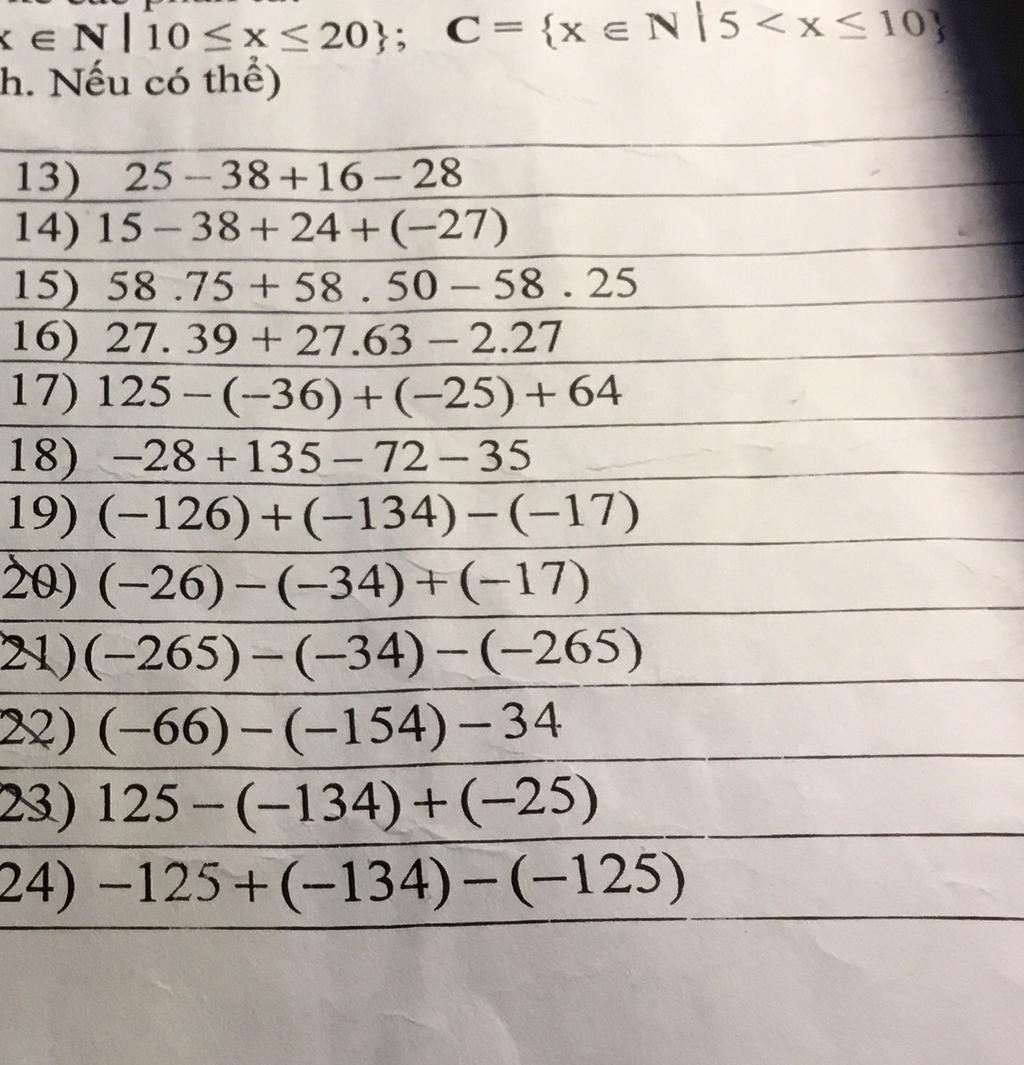 x ∈ N | 10 ≤ x ≤ 20}; C = {x ∈ N | 5 < x ≤ 10}
h. Nếu có thể)
13) 25 – 38 + 16 – 28
14) 15 – 38 + 24 + (–27)
15) 58 .75 + 58 . 50 – 58 . 25
16) 27. 39 + 27.63 – 2.27
17) 125 – (–36) + (–25) + 64
18) –28 + 135 – 72 – 35
19) (–126) + (–134) – (–17)
20) (–26) – (–34) + (–17)
21) (–265) – (–34) – (–265)
22) (–66) – (–154) – 34
23) 125 – (–134) + (–25)
24) –125 + (–134) – (–125)